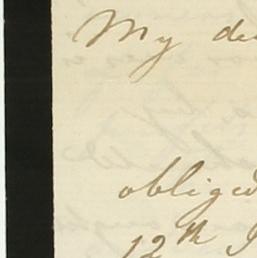 My de
oblige
12th